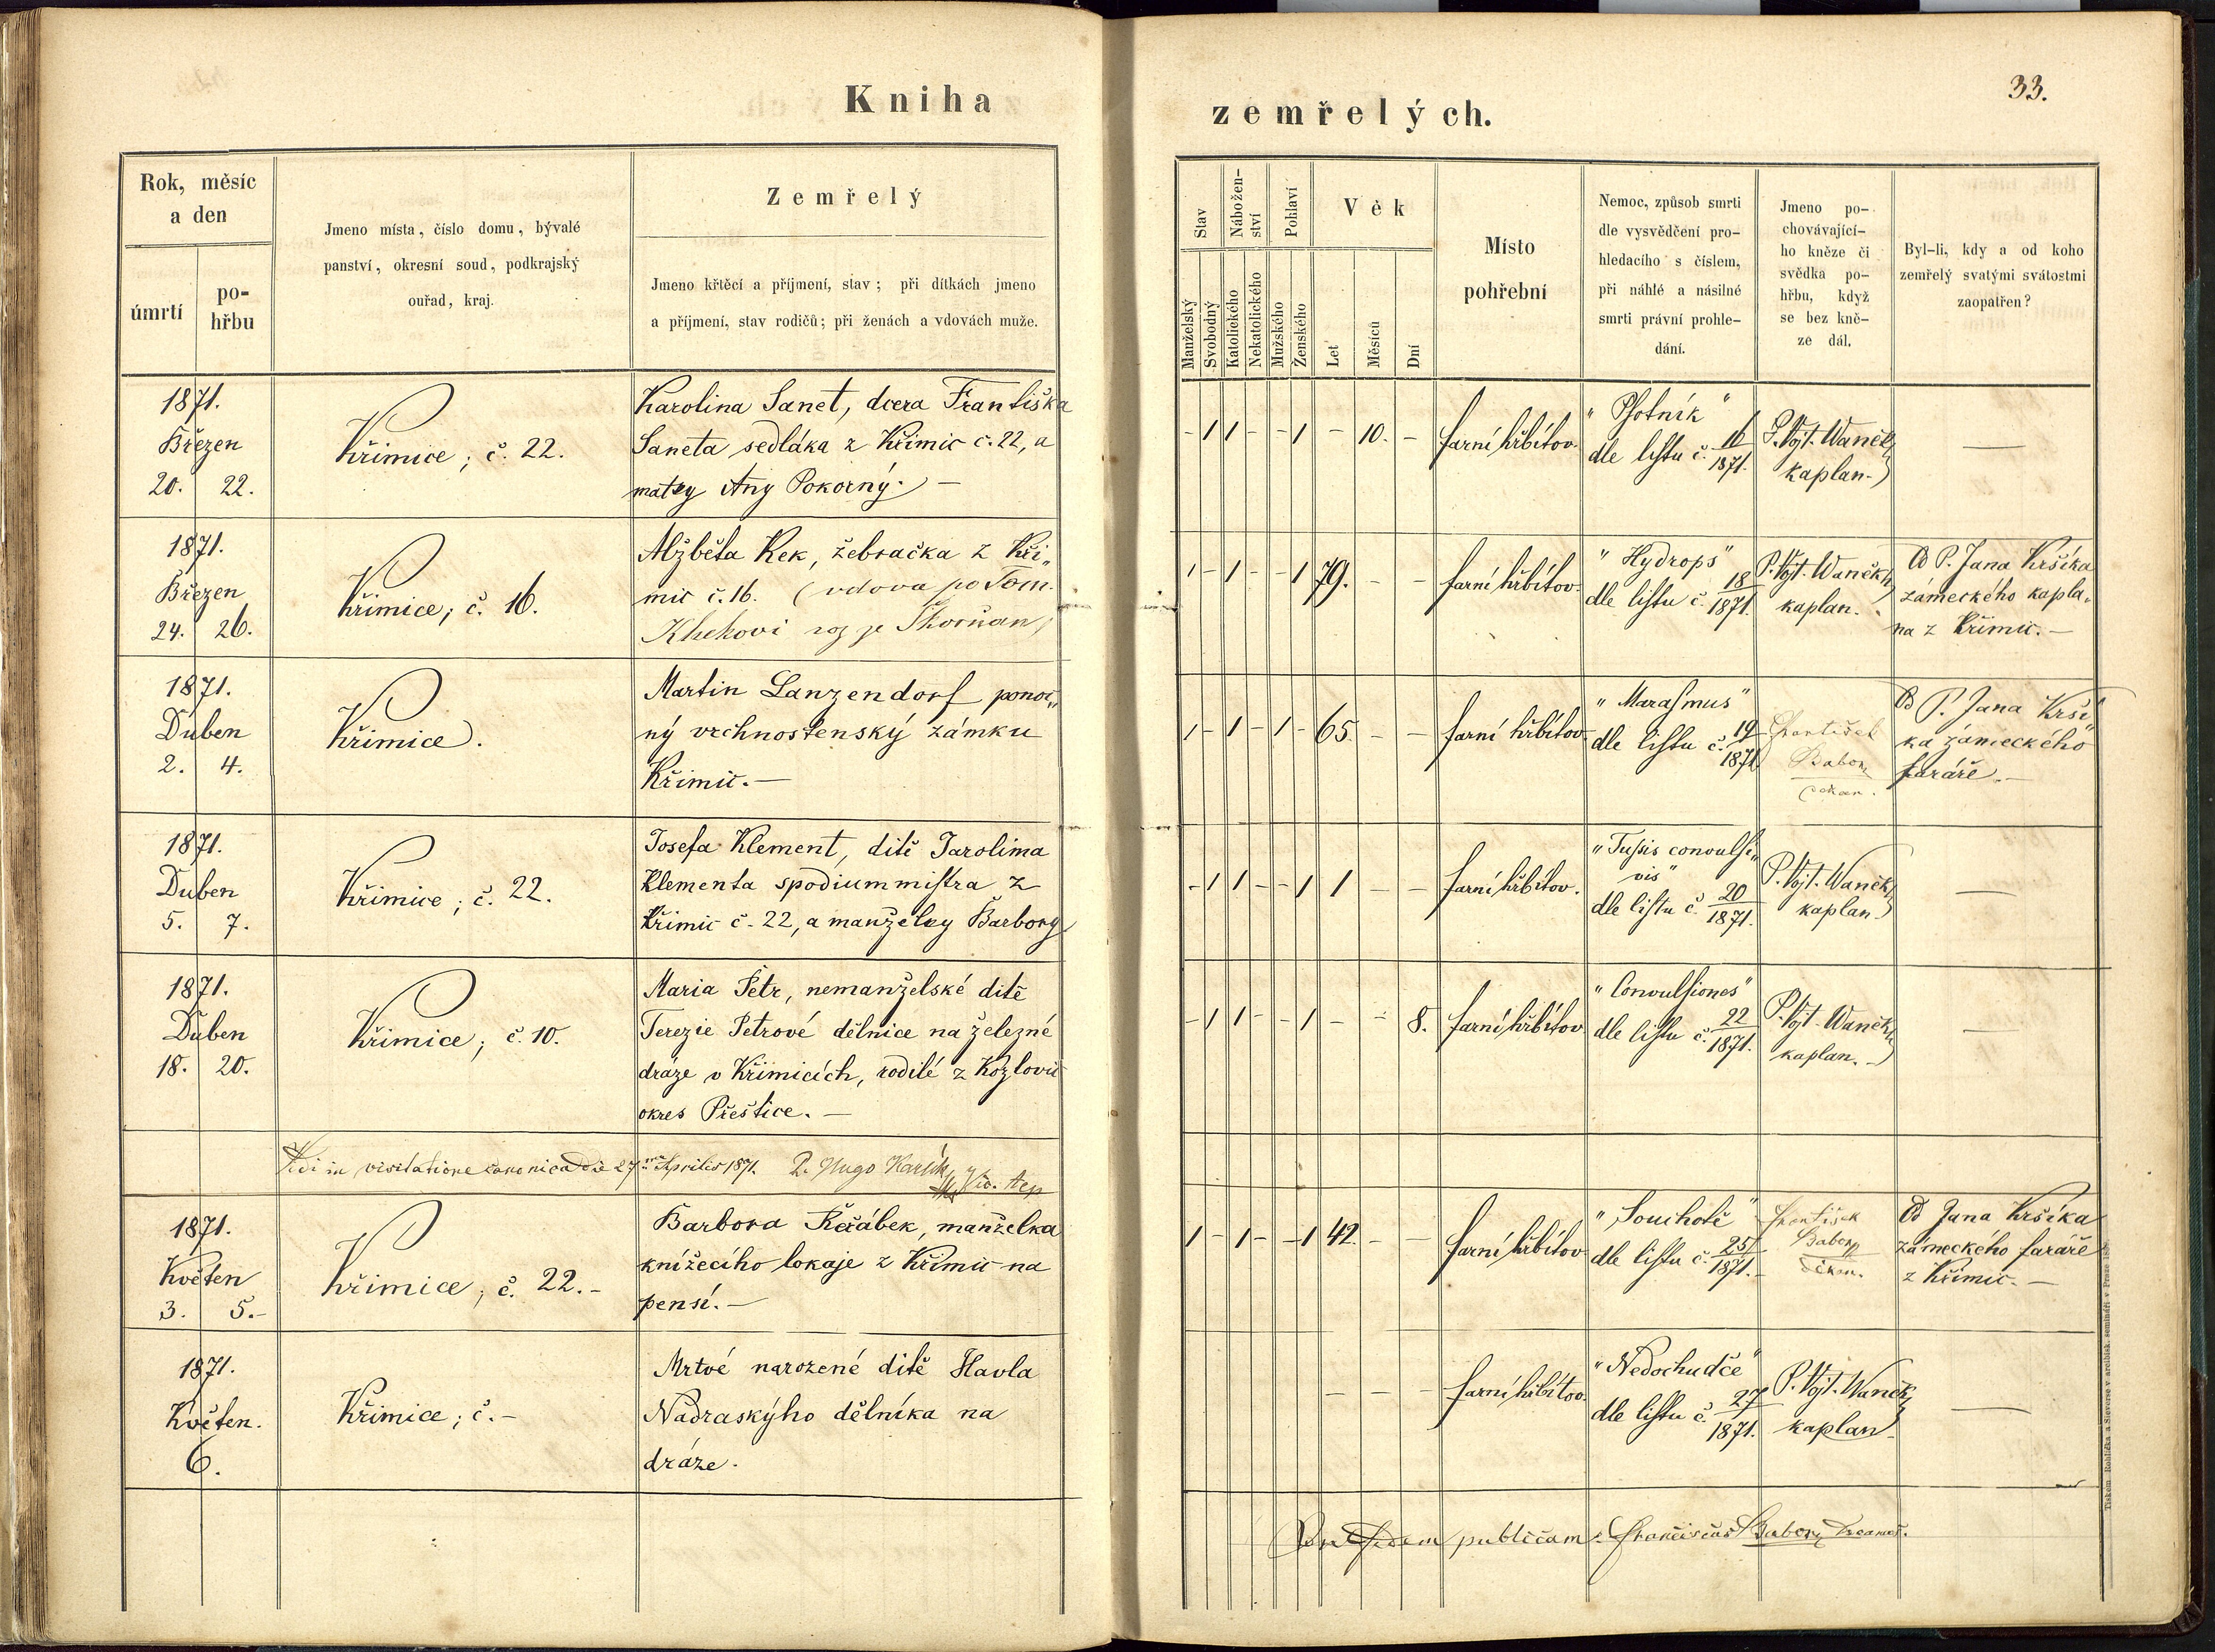 Kniha
zemřelých.
33.
Rok, měsíc
a den
úmrtí
po-
hřbu
Jmeno místa, číslo domu, bývalé
panství, okresní soud, podkrajský
ouřad, kraj.
Zemřelý
Jmeno křtěcí a příjmení, stav; při dítkách jmeno
a příjmení, stav rodičů; při ženách a vdovách muže.
Stav
Nábožen-
ství
Pohlaví
Věk
Manželský
Svobodný
Katolického
Nekatolického
Mužského
Ženského
Let
Měsíců
Dní
Místo
pohřební
Nemoc, způsob smrti
dle vysvědčení pro-
hledacího s číslem,
při náhlé a násilné
smrti právní prohle-
dání.
Jmeno po-
chovávající-
ho kněze či
svědka po-
hřbu, když
se bez kně-
ze dál.
Byl-li, kdy a od koho
zemřelý svatými svátostmi
zaopatřen?
1871.
Březen
20. 22.
Křimice; č. 22.
Karolina Sanet, dcera Františka
Saneta sedláka z Křimic č. 22, a
matky Any Pokorný. —
- 1 1 - - 1 - 10. -
farní hřbitov.
"Psotník"
dle listu č. 16/1871.
P. Vojt. Waněk,
kaplan.
—
1871.
Březen
24. 26.
Křimice; č. 16.
Alžběta Kek, žebračka z Kři„
mic č. 16. (vdova po Tom.
Khekovi roz je Škorňan)
1 - 1 - - 1 79. - -
farní hřbitov.
"Hydrops"
dle listu č. 18/1871.
P. Vojt. Waněk,
kaplan.
Od P. Jana Kršíka
zámeckého kapla„
na z Křimic. —
1871.
Duben
2. 4.
Křimice.
Martin Lanzendorf ponoc„
ný vrchnostenský zámku
Křimic. —
1 - 1 - 1 - 65. - -
farní hřbitov
"Marasmus"
dle listu č. 19/1871
František
Babor
Od P. Jana Krší„
ka zámeckého
faráře. —
1871.
Duben
5. 7.
Křimice; č. 22.
Josefa Klement, dítě Jarolima
Klementa spodiummistra z
Křimic č. 22, a manželky Barbory
- 1 1 - - 1 1 - -
farní hřbitov.
"Tussis convulsi„
vis"
dle listu č. 20/1871.
P. Vojt. Waněk,
kaplan.
—
1871.
Duben
18. 20.
Křimice; č. 10.
Maria Petr, nemanželské dítě
Terezie Petrové dělnice na železné
dráze v Křimicích, rodilé z Kozlovic
okres Přeštice. —
- 1 1 - - 1 - - 8.
farní hřbitov
"Convulsiones"
dle listu č. 22/1871.
P. Vojt. Waněk,
kaplan. —
—
Vidi in visitatione canonica die 27 Aprilis 1871. P. Hugo Karlík
1871.
Květen
3. 5.-
Křimice; č. 22. -
Barbora Řeřábek, manželka
knížecího lokaje z Křimic na
pensi. —
1 - 1 - - 1 42. - -
farní hřbitov
"Souchotě"
dle listu č. 25/1871. -
František
Babor,
děkan.
Od Jana Kršíka
zámeckého faráře
z Křimic. —
1871.
Květen.
6.
Křimice; č. -
Mrtvé narozené dítě Havla
Nadraskýho dělníka na
dráze.
- - -
farní hřbitov.
"Nedochudče"
dle listu č. 27/1871.
P. Vojt. Waněk,
kaplan
—
publicam: Franciscus Babor,
Tiskem Rohlíčka a Sieverse v arcibisk. semináři v Praze